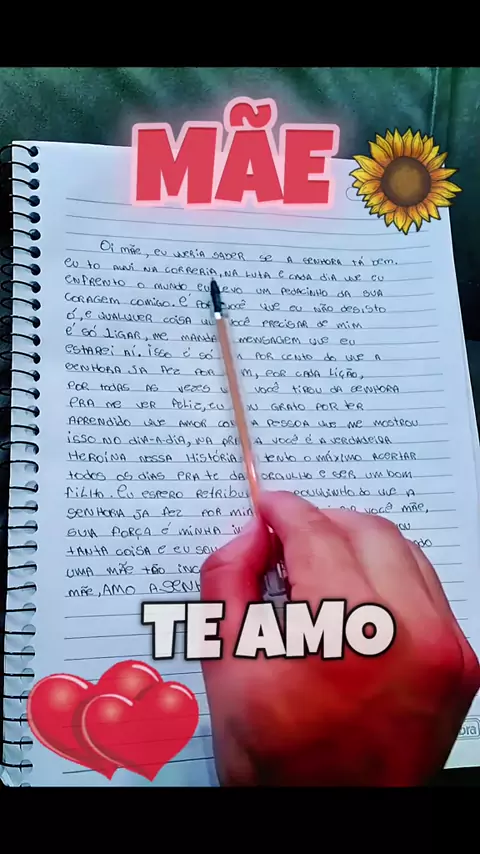 MÃE
OI MÃE, EU QUERIA SABER SE A SENHORA TÁ BEM.
EU TO AQUI NA CORRERIA, NA LUTA E CADA DIA QUE EU
ENFRENTO O MUNDO EU LEVO UM PEDACINHO DA SUA
CORAGEM COMIGO. É POR VOCÊ QUE EU NÃO DESISTO
Ó, E QUALQUER COISA QUE VOCÊ PRECISAR DE MIM
É SÓ LIGAR, ME MANDA MENSAGEM QUE EU
ESTAREI AÍ. ISSO É SÓ UM POR CENTO DO QUE A
SENHORA JA FEZ POR MIM, POR CADA LIÇÃO,
POR TODAS AS VEZES QUE VOCÊ TIROU DA SENHORA
PRA ME VER FELIZ, EU SOU GRATO POR TER
APRENDIDO QUE AMOR COM A PESSOA QUE ME MOSTROU
ISSO NO DIA-A-DIA, NA VOCÊ É A VERDADEIRA
HEROÍNA NOSSA HISTÓRIA TENTO O MÁXIMO ACERTAR
TODOS OS DIAS PRA TE DAR ORGULHO E SER UM BOM
FILHO. EU ESPERO RETRIBUIR DO QUE A
SENHORA JA FEZ POR MIM VOCÊ MÃE,
SUA FORÇA É MINHA
TANTA COISA E EU SOU
UMA MÃE TÃO
MÃE, AMO A
TE AMO